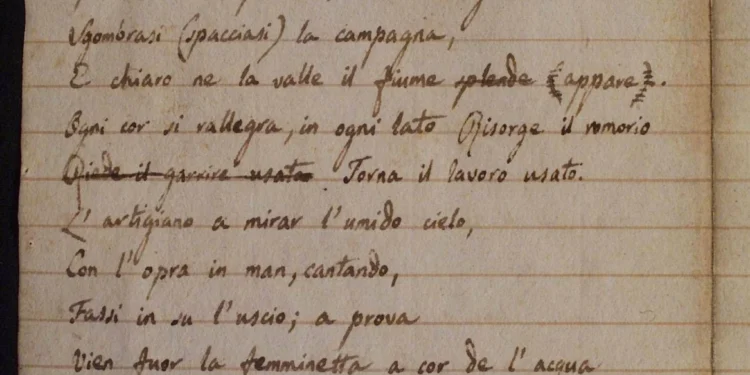 Sgombrasi (spacciasi) la campagna,
E chiaro ne la valle il fiume splende (appare).
Ogni cor si rallegra, in ogni lato Risorge il romorio
Riede il garrire usato Torna il lavoro usato.
L' artigiano a mirar l' umido cielo,
Con l' opra in man, cantando,
Fassi in su l' uscio; a prova
Vien fuor la femminetta a cor de l' acqua